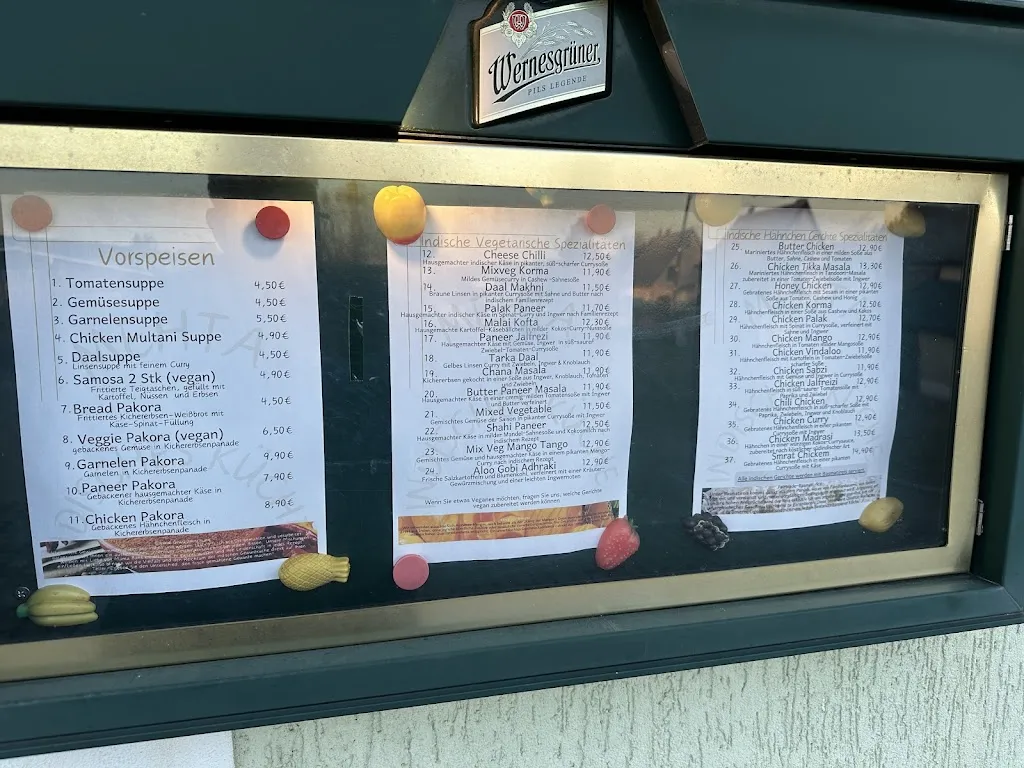 Wernesgrüner
PILS LEGENDE
Vorspeisen
1. Tomatensuppe 4,50€
2. Gemüsesuppe 4,50€
3. Garnelensuppe 5,50€
4. Chicken Multani Suppe 4,90€
5. Daalsuppe 4,50€
Linsensuppe mit feinem Curry
6. Samosa 2 Stk (vegan) 4,90€
Frittierte Teigtaschen, gefüllt mit
Kartoffel, Nüssen und Erbsen
7. Bread Pakora 4,50€
Frittiertes Kichererbsen-Weißbrot mit
Käse-Spinat-Füllung
8. Veggie Pakora (vegan) 6,50€
gebackenes Gemüse in Kichererbsenpanade
9. Garnelen Pakora 9,90€
Garnelen in Kichererbsenpanade
10. Paneer Pakora 7,90€
Gebackener hausgemachter Käse in
Kichererbsenpanade
11. Chicken Pakora 8,90€
Gebackenes Hähnchenfleisch in
Kichererbsenpanade
Indische Vegetarische Spezialitäten
12. Cheese Chilli 12,50€
Hausgemachter indischer Käse in pikanter, süß-scharfer Currysoße
13. Mixveg Korma 11,90€
Mildes Gemüsecurry in Cashew-Sahnesoße
14. Daal Makhni 11,50€
Braune Linsen in pikanter Currysoße mit Sahne und Butter nach
indischem Familienrezept
15. Palak Paneer 11,70€
Hausgemachter indischer Käse in Spinat-Curry und Ingwer nach Familienrezept
16. Malai Kofta 12,50€
Hausgemachte Kartoffel-Käsebällchen in milder Kokos-Curry-Nussoße
17. Paneer Jalfrezi 11,90€
Hausgemachter Käse mit Gemüse, Ingwer in süß-saurer
Zwiebel-Tomaten-Currysoße
18. Tarka Daal 11,90€
Gelbes Linsen Curry mit Zwiebeln, Ingwer & Knoblauch
19. Chana Masala 11,90€
Kichererbsen gekocht in einer Soße aus Ingwer, Knoblauch, Tomaten
und Zwiebeln
20. Butter Paneer Masala 11,90€
Hausgemachter Käse in einer cremig-milden Tomatensoße mit Ingwer
und Butter verfeinert
21. Mixed Vegetable 11,50€
Gemischtes Gemüse der Saison in pikanter Currysoße mit Ingwer
22. Shahi Paneer 12,50€
Hausgemachter Käse in milder Mandel-Sahnesoße und Kokosmilch nach
indischem Rezept
23. Mix Veg Mango Tango 12,90€
Gemischtes Gemüse und hausgemachter Käse in einem pikanten Mango-
Curry nach indischem Rezept
24. Aloo Gobi Adhraki 12,90€
Frische Salzkartoffeln und Blumenkohl, verfeinert mit einer Kräuter-
Gewürzmischung und einer leichten Ingwernoten
Wenn Sie etwas Veganes möchten, fragen Sie uns, welche Gerichte
vegan zubereitet werden können.
Indische Hähnchen Gerichte Spezialitäten
25. Butter Chicken 12,90€
Mariniertes Hähnchenfleisch in einer pikanten Soße aus
Butter, Sahne, Cashew und Tomaten
26. Chicken Tikka Masala 13,50€
Mariniertes Hähnchenfleisch in Tandoori-Masala
zubereitet in einer Tomaten-Zwiebelsoße mit Ingwer
27. Honey Chicken 12,90€
Gebratenes Hähnchenfleisch mit Sesam in einer pikanten
Soße aus Tomaten, Cashew und Honig
28. Chicken Korma 12,50€
Hähnchenfleisch in einer Soße aus Cashew und Kokos
29. Chicken Palak 12,70€
Hähnchenfleisch mit Spinat in Currysoße, verfeinert mit
Sahne und Ingwer
30. Chicken Mango 12,90€
Hähnchenfleisch in Tomaten milder Mangosoße
31. Chicken Vindaloo 11,90€
Hähnchenfleisch mit Kartoffeln in Tomaten-Zwiebelsoße
scharf
32. Chicken Sabzi 11,90€
Hähnchenfleisch mit Gemüse und Ingwer in Currysoße
33. Chicken Jalfreizi 12,90€
Hähnchenfleisch in süß-saurer Tomatensoße mit
Paprika und Zwiebeln
34. Chili Chicken 12,90€
Gebratenes Hähnchenfleisch in süß-scharfer Soße mit
Paprika, Zwiebeln, Ingwer und Knoblauch
35. Chicken Curry 12,90€
Gebratenes Hähnchenfleisch in einer pikanten
Currysoße mit Ingwer
36. Chicken Madrasi 13,50€
37. Smrat Chickem 14,90€
Gebratenes Hähnchenfleisch in einer pikanten
Currysoße mit Käse
Alle indischen Gerichte werden mit Basmatireis serviert.